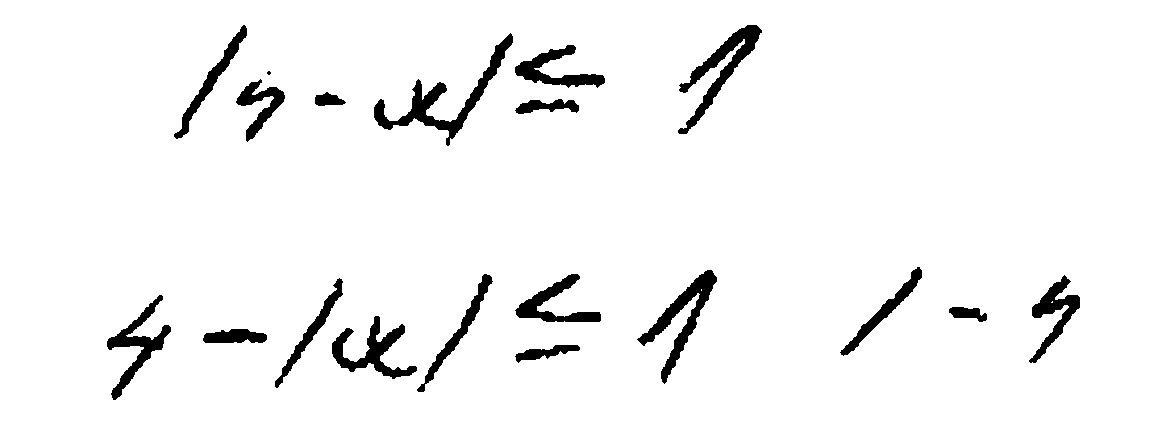 |4-x| ≤ 1
4-|x| ≤ 1 /-4